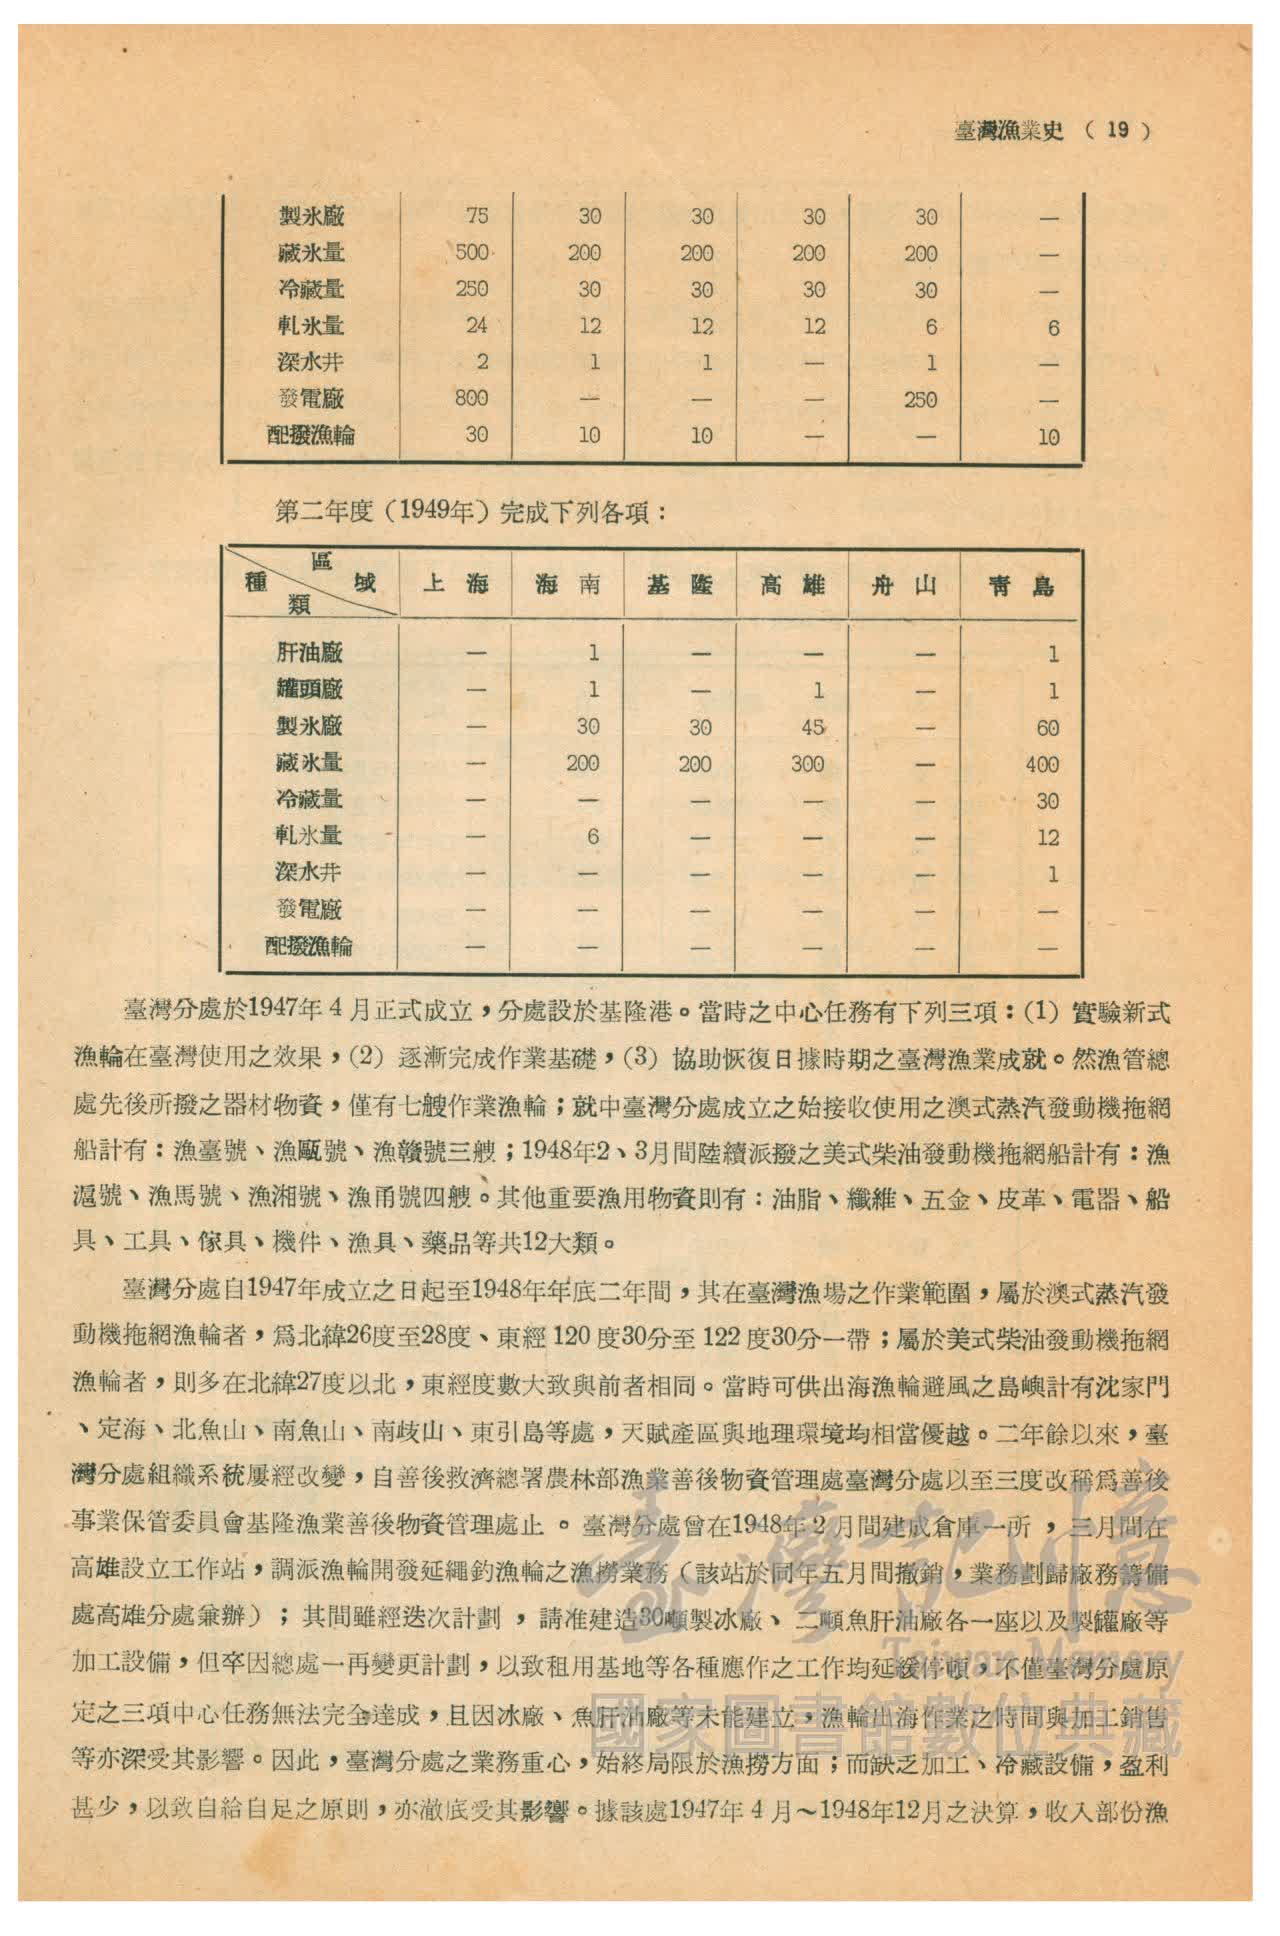 臺灣漁業史 ( 19 )
製氷廠 75 30 30 30 30 —
藏氷量 500 200 200 200 200 —
冷藏量 250 30 30 30 30 —
軋氷量 24 12 12 12 6 6
深水井 2 1 1 — 1 —
發電廠 800 — — — 250 —
配撥漁輪 30 10 10 — — 10
第二年度（1949年）完成下列各項：
區域 種類 上海 海南 基隆 高雄 舟山 青島
肝油廠 — 1 — — — 1
罐頭廠 — 1 — 1 — 1
製氷廠 — 30 30 45 — 60
藏氷量 — 200 200 300 — 400
冷藏量 — — — — — 30
軋氷量 — 6 — — — 12
深水井 — — — — — 1
發電廠 — — — — — —
配撥漁輪 — — — — — —
臺灣分處於1947年4月正式成立，分處設於基隆港。當時之中心任務有下列三項：(1) 實驗新式
漁輪在臺灣使用之效果，(2) 逐漸完成作業基礎，(3) 協助恢復日據時期之臺灣漁業成就。然漁管總
處先後所撥之器材物資，僅有七艘作業漁輪；就中臺灣分處成立之始接收使用之澳式蒸汽發動機拖網
船計有：漁臺號、漁甌號、漁贛號三艘；1948年2、3月間陸續派撥之美式柴油發動機拖網船計有：漁
滬號、漁馬號、漁湘號、漁甬號四艘。其他重要漁用物資則有：油脂、纖維、五金、皮革、電器、船
具、工具、傢具、機件、漁具、藥品等共12大類。
臺灣分處自1947年成立之日起至1948年年底二年間，其在臺灣漁場之作業範圍，屬於澳式蒸汽發
動機拖網漁輪者，爲北緯26度至28度、東經 120 度30分至 122 度30分一帶；屬於美式柴油發動機拖網
漁輪者，則多在北緯27度以北，東經度數大致與前者相同。當時可供出海漁輪避風之島嶼計有沈家門
、定海、北魚山、南魚山、南歧山、東引島等處，天賦產區與地理環境均相當優越。二年餘以來，臺
灣分處組織系統屢經改變，自善後救濟總署農林部漁業善後物資管理處臺灣分處以至三度改稱爲善後
事業保管委員會基隆漁業善後物資管理處止。臺灣分處曾在1948年2月間建成倉庫一所，三月間在
高雄設立工作站，調派漁輪開發延繩釣漁輪之漁撈業務（該站於同年五月間撤銷，業務劃歸廠務籌備
處高雄分處兼辦）；其間雖經迭次計劃，請准建造30噸製冰廠、二噸魚肝油廠各一座以及製罐廠等
加工設備，但卒因總處一再變更計劃，以致租用基地等各種應作之工作均延緩停頓，不僅臺灣分處原
定之三項中心任務無法完全達成，且因冰廠、魚肝油廠等未能建立，漁輪出海作業之時間與加工銷售
等亦深受其影響。因此，臺灣分處之業務重心，始終局限於漁撈方面；而缺乏加工、冷藏設備，盈利
甚少，以致自給自足之原則，亦澈底受其影響。據該處1947年4月～1948年12月之決算，收入部份漁
臺灣記憶
Taiwan Memory
國家圖書館數位典藏